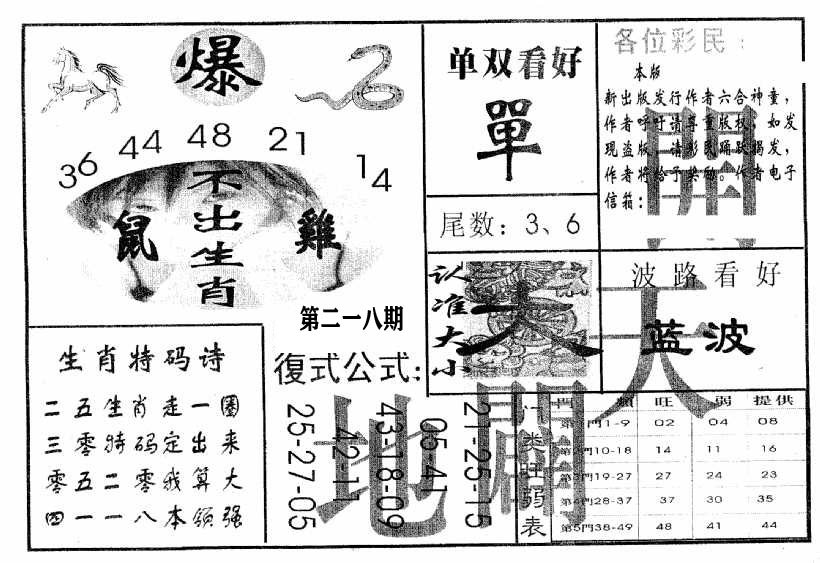 爆
36 44 48 21 14
不出生肖
鼠
雞
第二一八期
单双看好
單
尾数：3、6
各位彩民：
本版
新出版发行作者六合神童，
作者呼吁请尊重版权，如发
现盗版，请彩民踊跃揭发，
作者将给予奖励。作者电子
信箱：
认准大小
大
波路看好
蓝波
開天
闢地
生肖特码诗
二五生肖走一圈
三零特码定出来
零五二零我算大
四一一八本领强
復式公式：
25-27-05
42-11
43-18-09
05-41
21-25-15
门类旺弱表
門 類 旺 弱 提供
第1門1-9 02 04 08
第2門10-18 14 11 16
第3門19-27 27 24 23
第4門28-37 37 30 35
第5門38-49 48 41 44